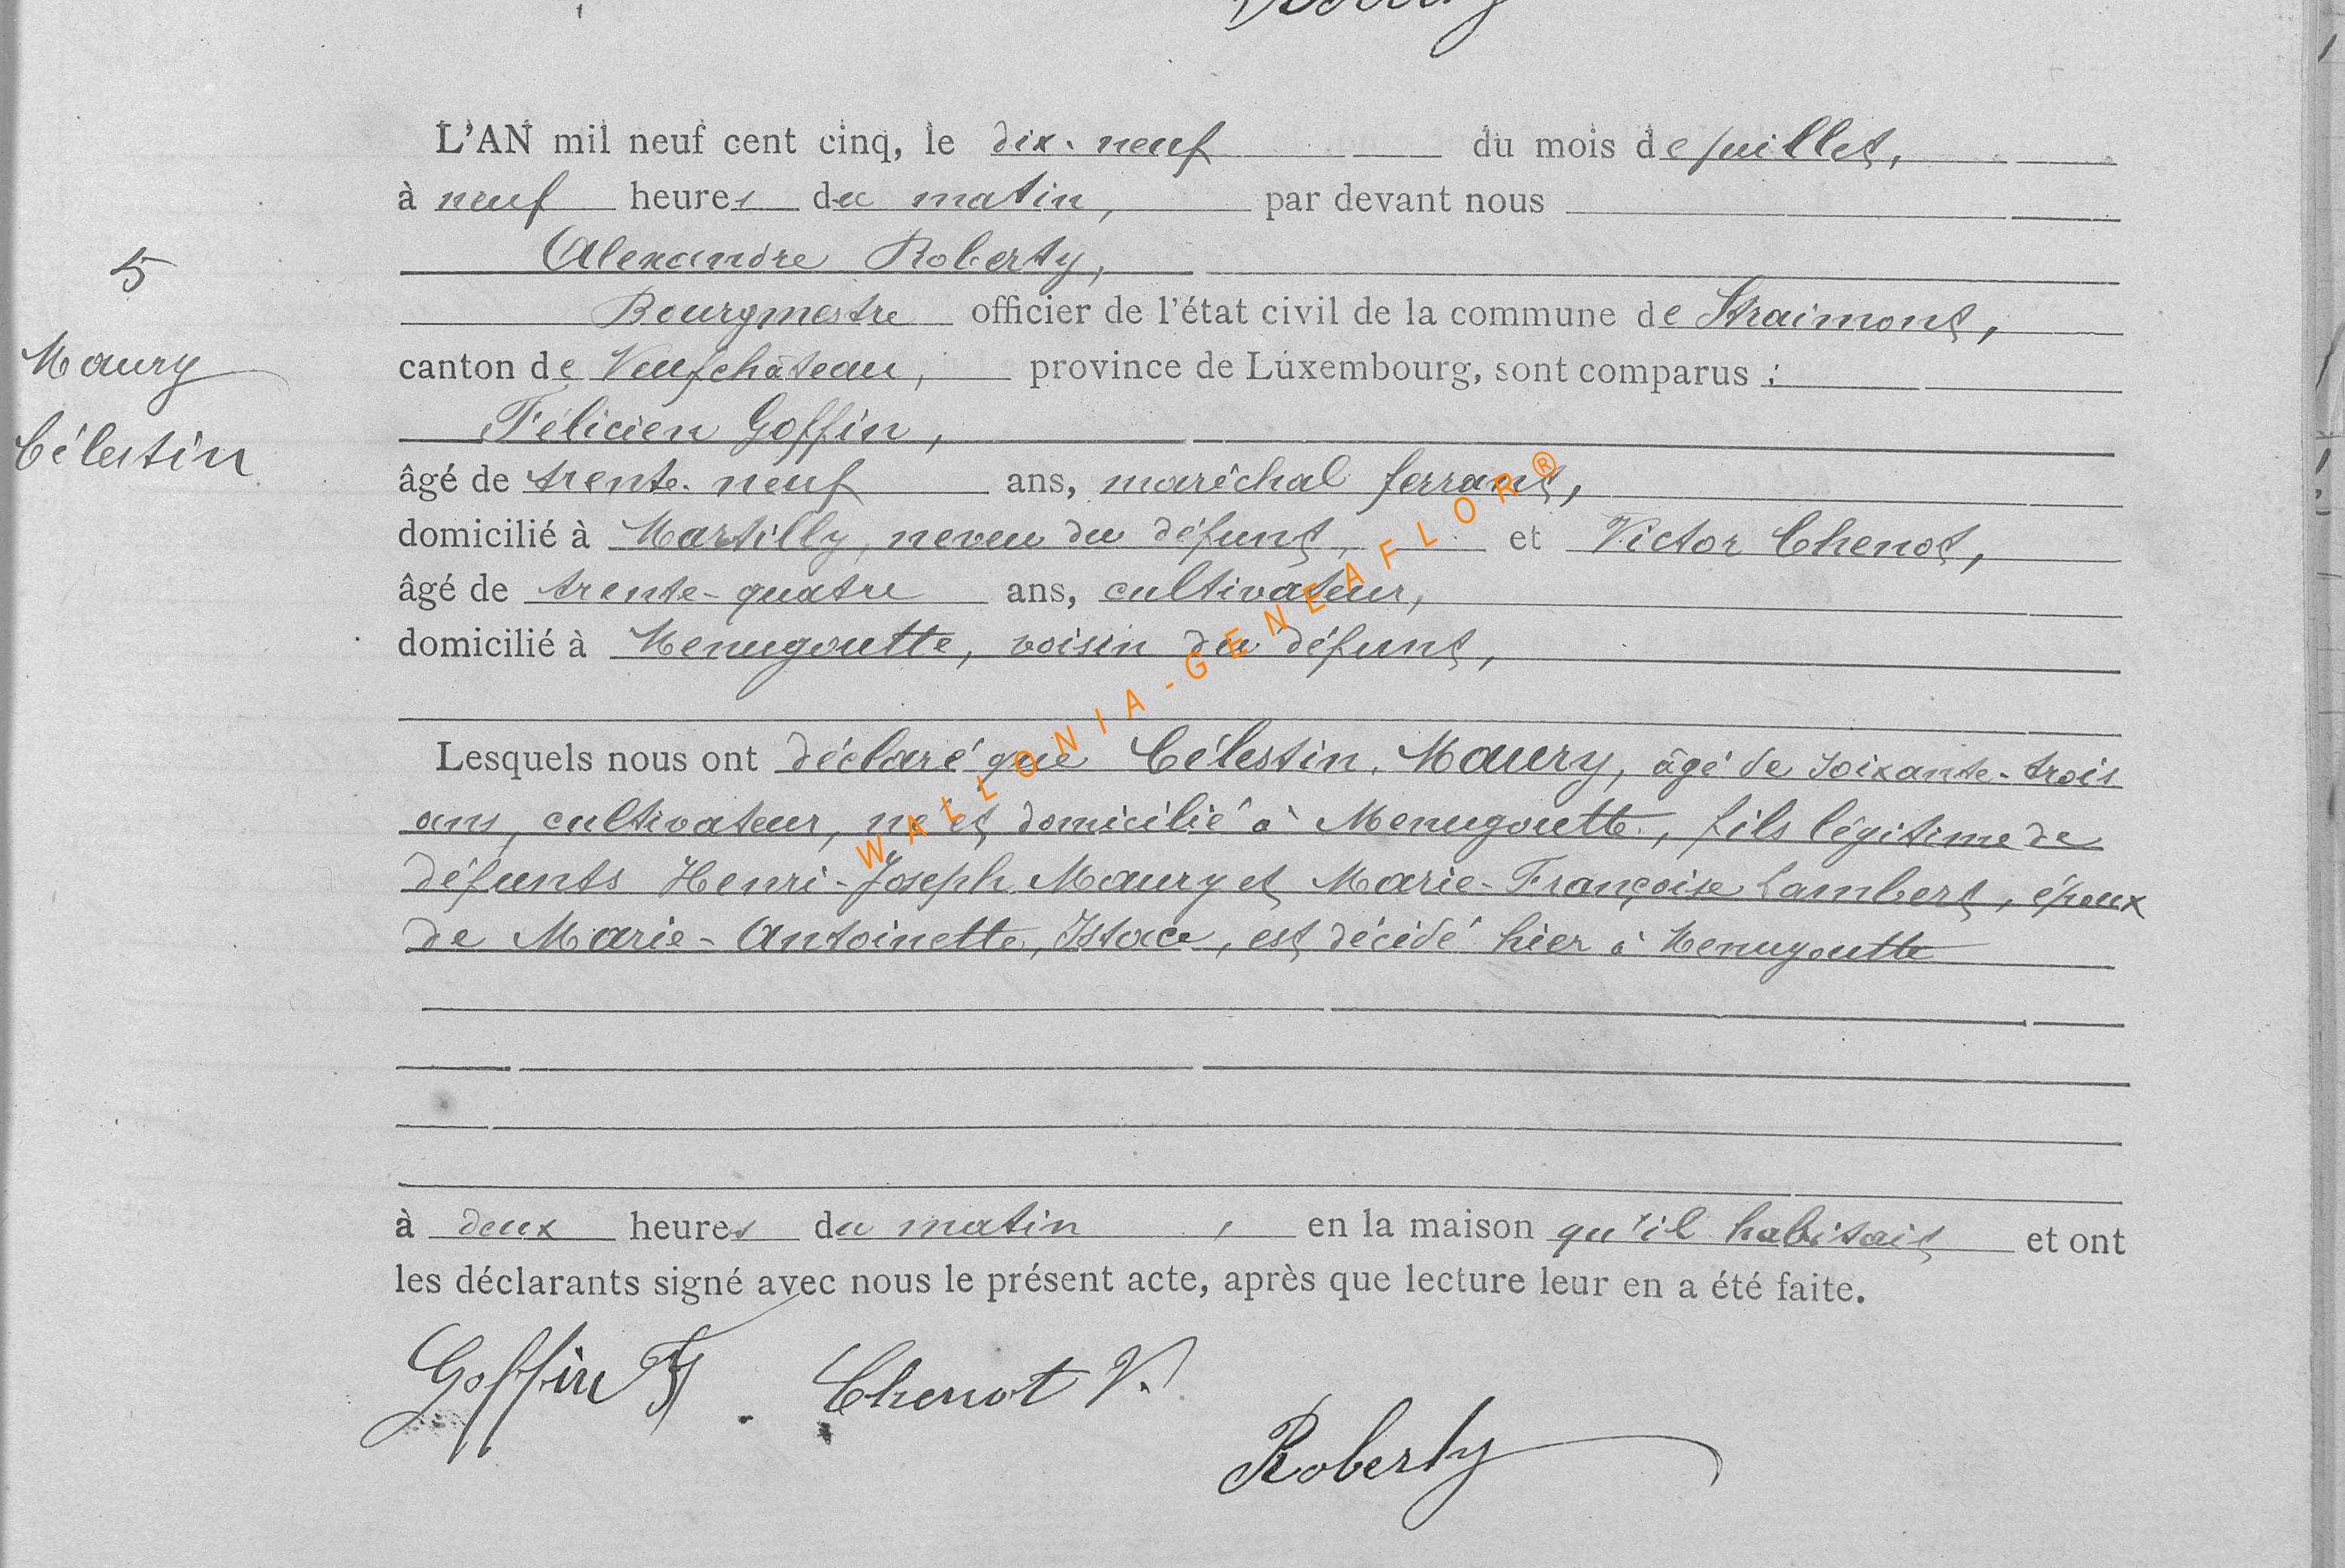 L'AN mil neuf cent cinq, le dix-neuf du mois de juillet,
à neuf heures du matin, par devant nous
Alexandre Roberty,
5
Bourgmestre officier de l'état civil de la commune de Straimont,
Maury
canton de Neufchâteau, province de Luxembourg, sont comparus :
Félicien Goffin,
Célestin
âgé de trente-neuf ans, maréchal ferrant,
domicilié à Martilly, neveu du défunt, et Victor Chenot,
âgé de trente-quatre ans, cultivateur,
domicilié à Menugoutte, voisin du défunt,
Lesquels nous ont déclaré que Célestin Maury, âgé de soixante-trois
ans, cultivateur, né et domicilié à Menugoutte, fils légitime de
défunts Henri-Joseph Maury et Marie-Françoise Lambert, époux
de Marie-Antoinette Istace, est décédé hier à Menugoutte
à deux heures du matin, en la maison qu'il habitait et ont
les déclarants signé avec nous le présent acte, après que lecture leur en a été faite.
Goffin F. Chenot V.
Roberty
WALLONIA-GENEAFLOR®